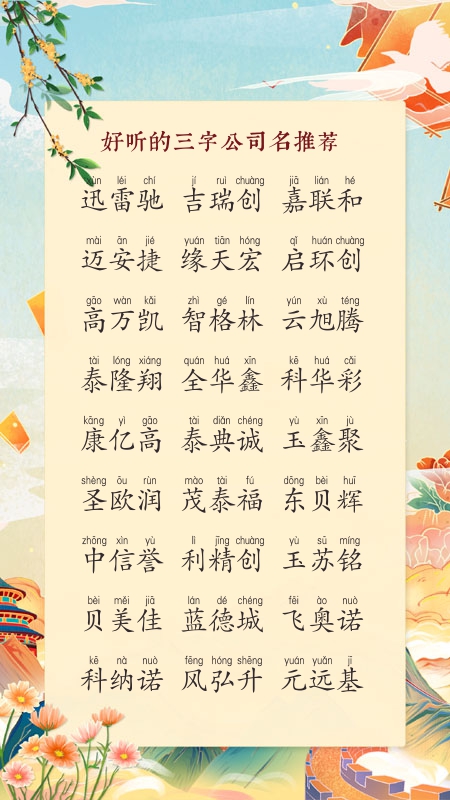 好听的三字公司名推荐
xùn léi chí jí ruì chuàng jiā lián hé
迅雷驰 吉瑞创 嘉联和
mài ān jié yuán tiān hóng qǐ huán chuàng
迈安捷 缘天宏 启环创
gāo wàn kǎi zhì gé lín yún xù téng
高万凯 智格林 云旭腾
tài lóng xiáng quán huá xīn kē huá cǎi
泰隆翔 全华鑫 科华彩
kāng yì gāo tài diǎn chéng yù xīn jù
康亿高 泰典诚 玉鑫聚
shèng ōu rùn mào tài fú dōng bèi huī
圣欧润 茂泰福 东贝辉
zhōng xìn yù lì jīng chuàng yù sū míng
中信誉 利精创 玉苏铭
bèi měi jiā lán dé chéng fēi ào nuò
贝美佳 蓝德城 飞奥诺
kē nà nuò fēng hóng shēng yuán yuǎn jī
科纳诺 风弘升 元远基